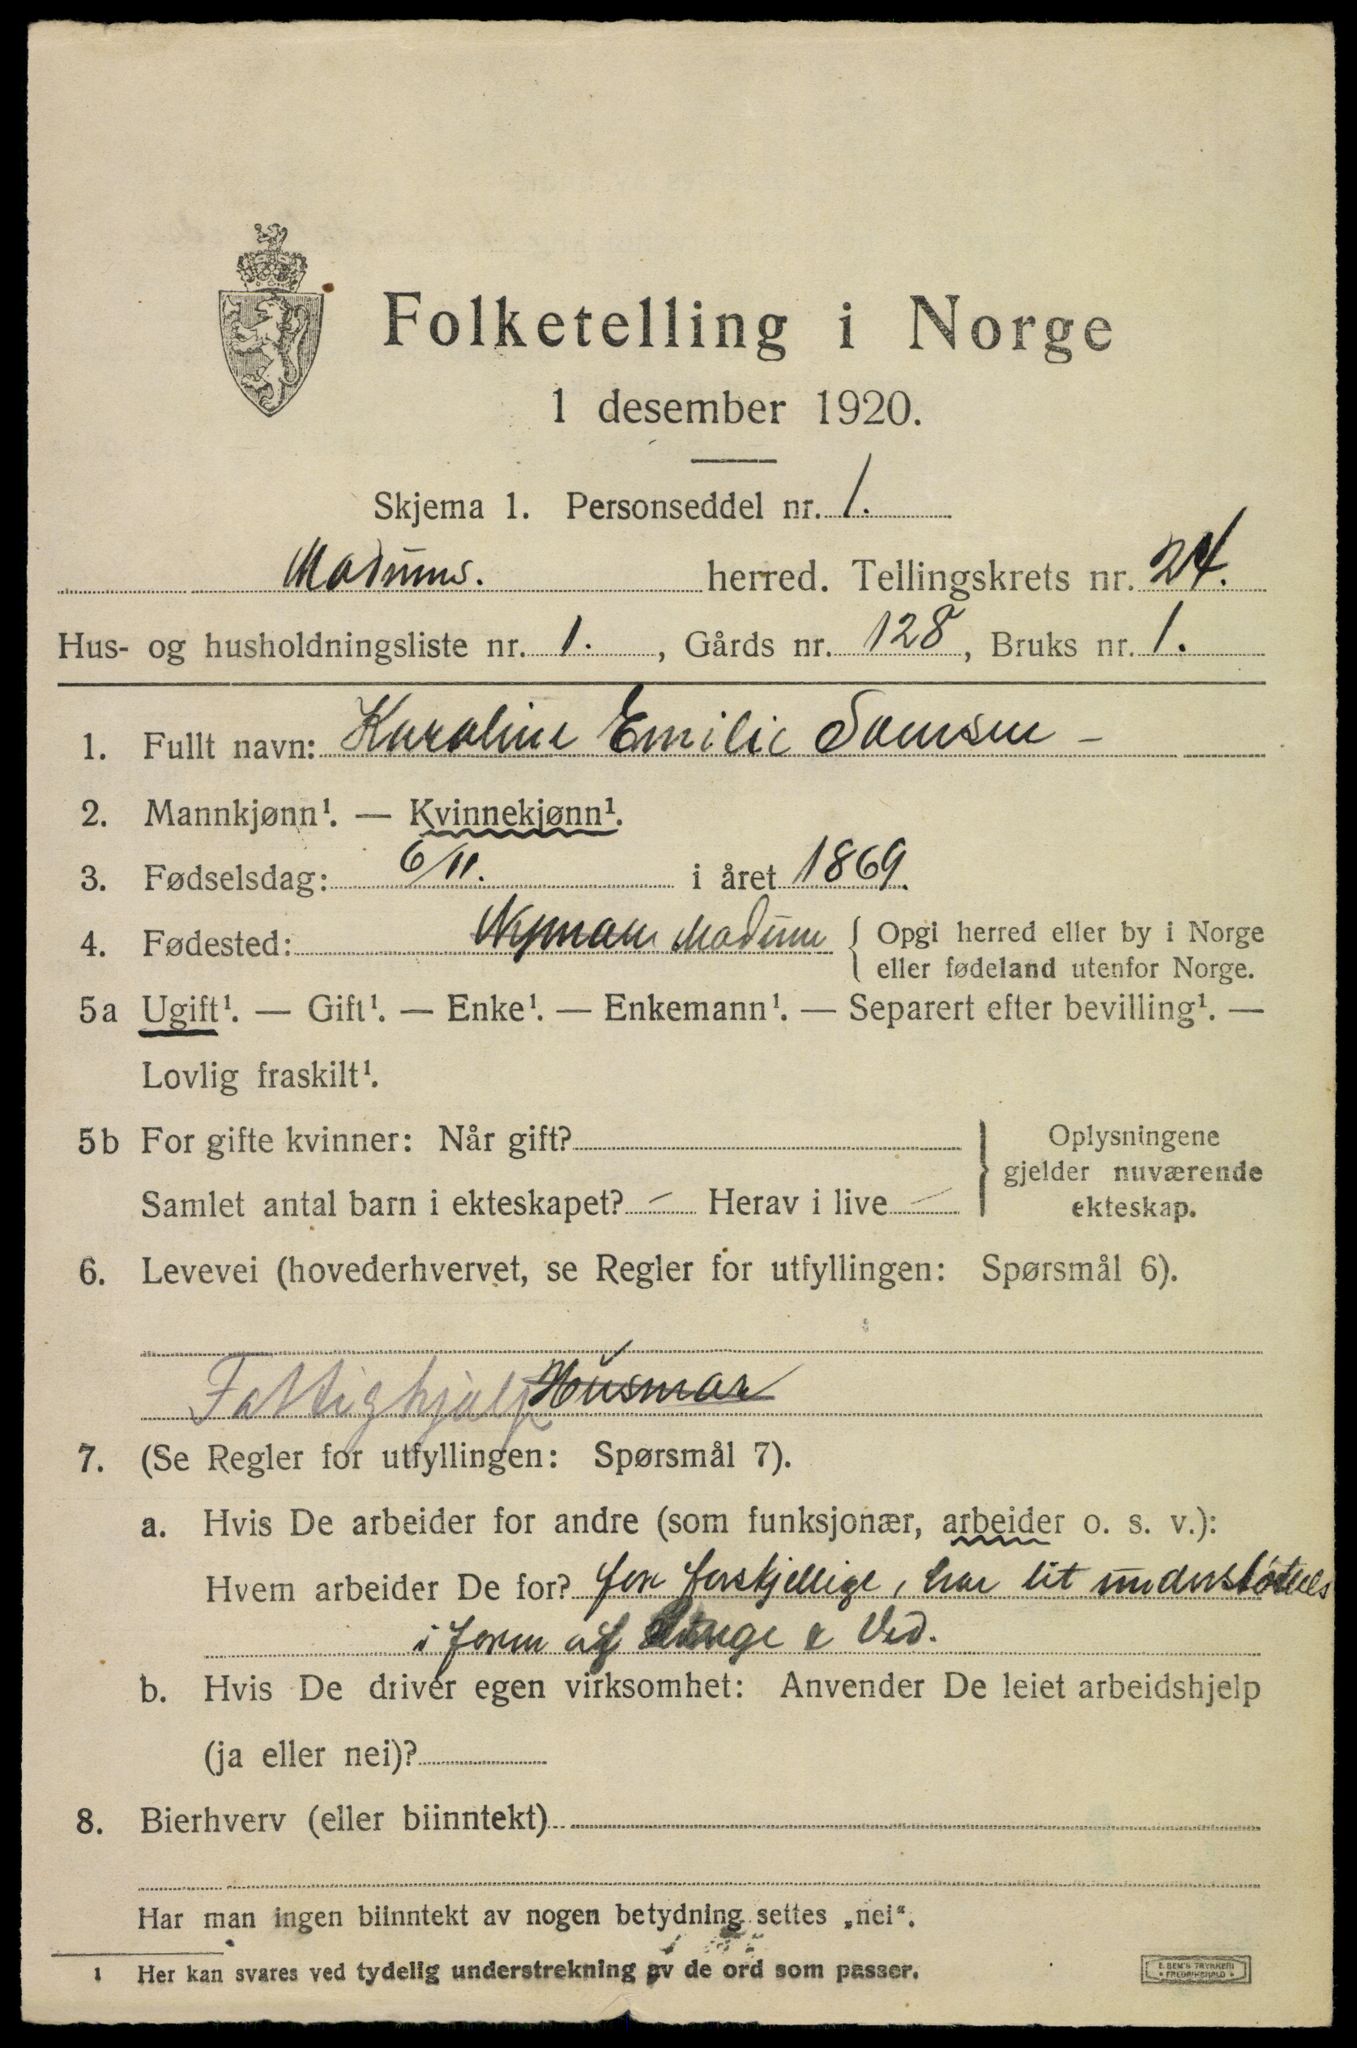 Folketelling i Norge
1 desember 1920.
Skjema 1. Personseddel nr. 1.
Modums. herred. Tellingskrets nr. 24.
Hus- og husholdningsliste nr. 1. , Gårds nr. 128, Bruks nr. 1.
1. Fullt navn: Karoline Emilie Samsen -
2. Mannkjønn¹. — Kvinnekjønn¹.
3. Fødselsdag: 6/11. i året 1869.
4. Fødested: Modum { Opgi herred eller by i Norge
eller fødeland utenfor Norge.
5a Ugift¹. — Gift¹. — Enke¹. — Enkemann¹. — Separert efter bevilling¹. —
Lovlig fraskilt¹.
5b For gifte kvinner: Når gift? } Oplysningene
gjelder nuværende
Samlet antal barn i ekteskapet? — Herav i live —
ekteskap.
6. Levevei (hovederhvervet, se Regler for utfyllingen: Spørsmål 6).
Fattighjælp Husmor
7. (Se Regler for utfyllingen: Spørsmål 7).
a. Hvis De arbeider for andre (som funksjonær, arbeider o. s. v.):
Hvem arbeider De for? for forskjellige, har lit understøttels
i form af Penge & Ved.
b. Hvis De driver egen virksomhet: Anvender De leiet arbeidshjelp
(ja eller nei)?
8. Bierhverv (eller biinntekt)
Har man ingen biinntekt av nogen betydning settes „nei“.
¹ Her kan svares ved tydelig understrekning av de ord som passer.
E. SEM'S TRYKKERI
FREDRIKSHALD